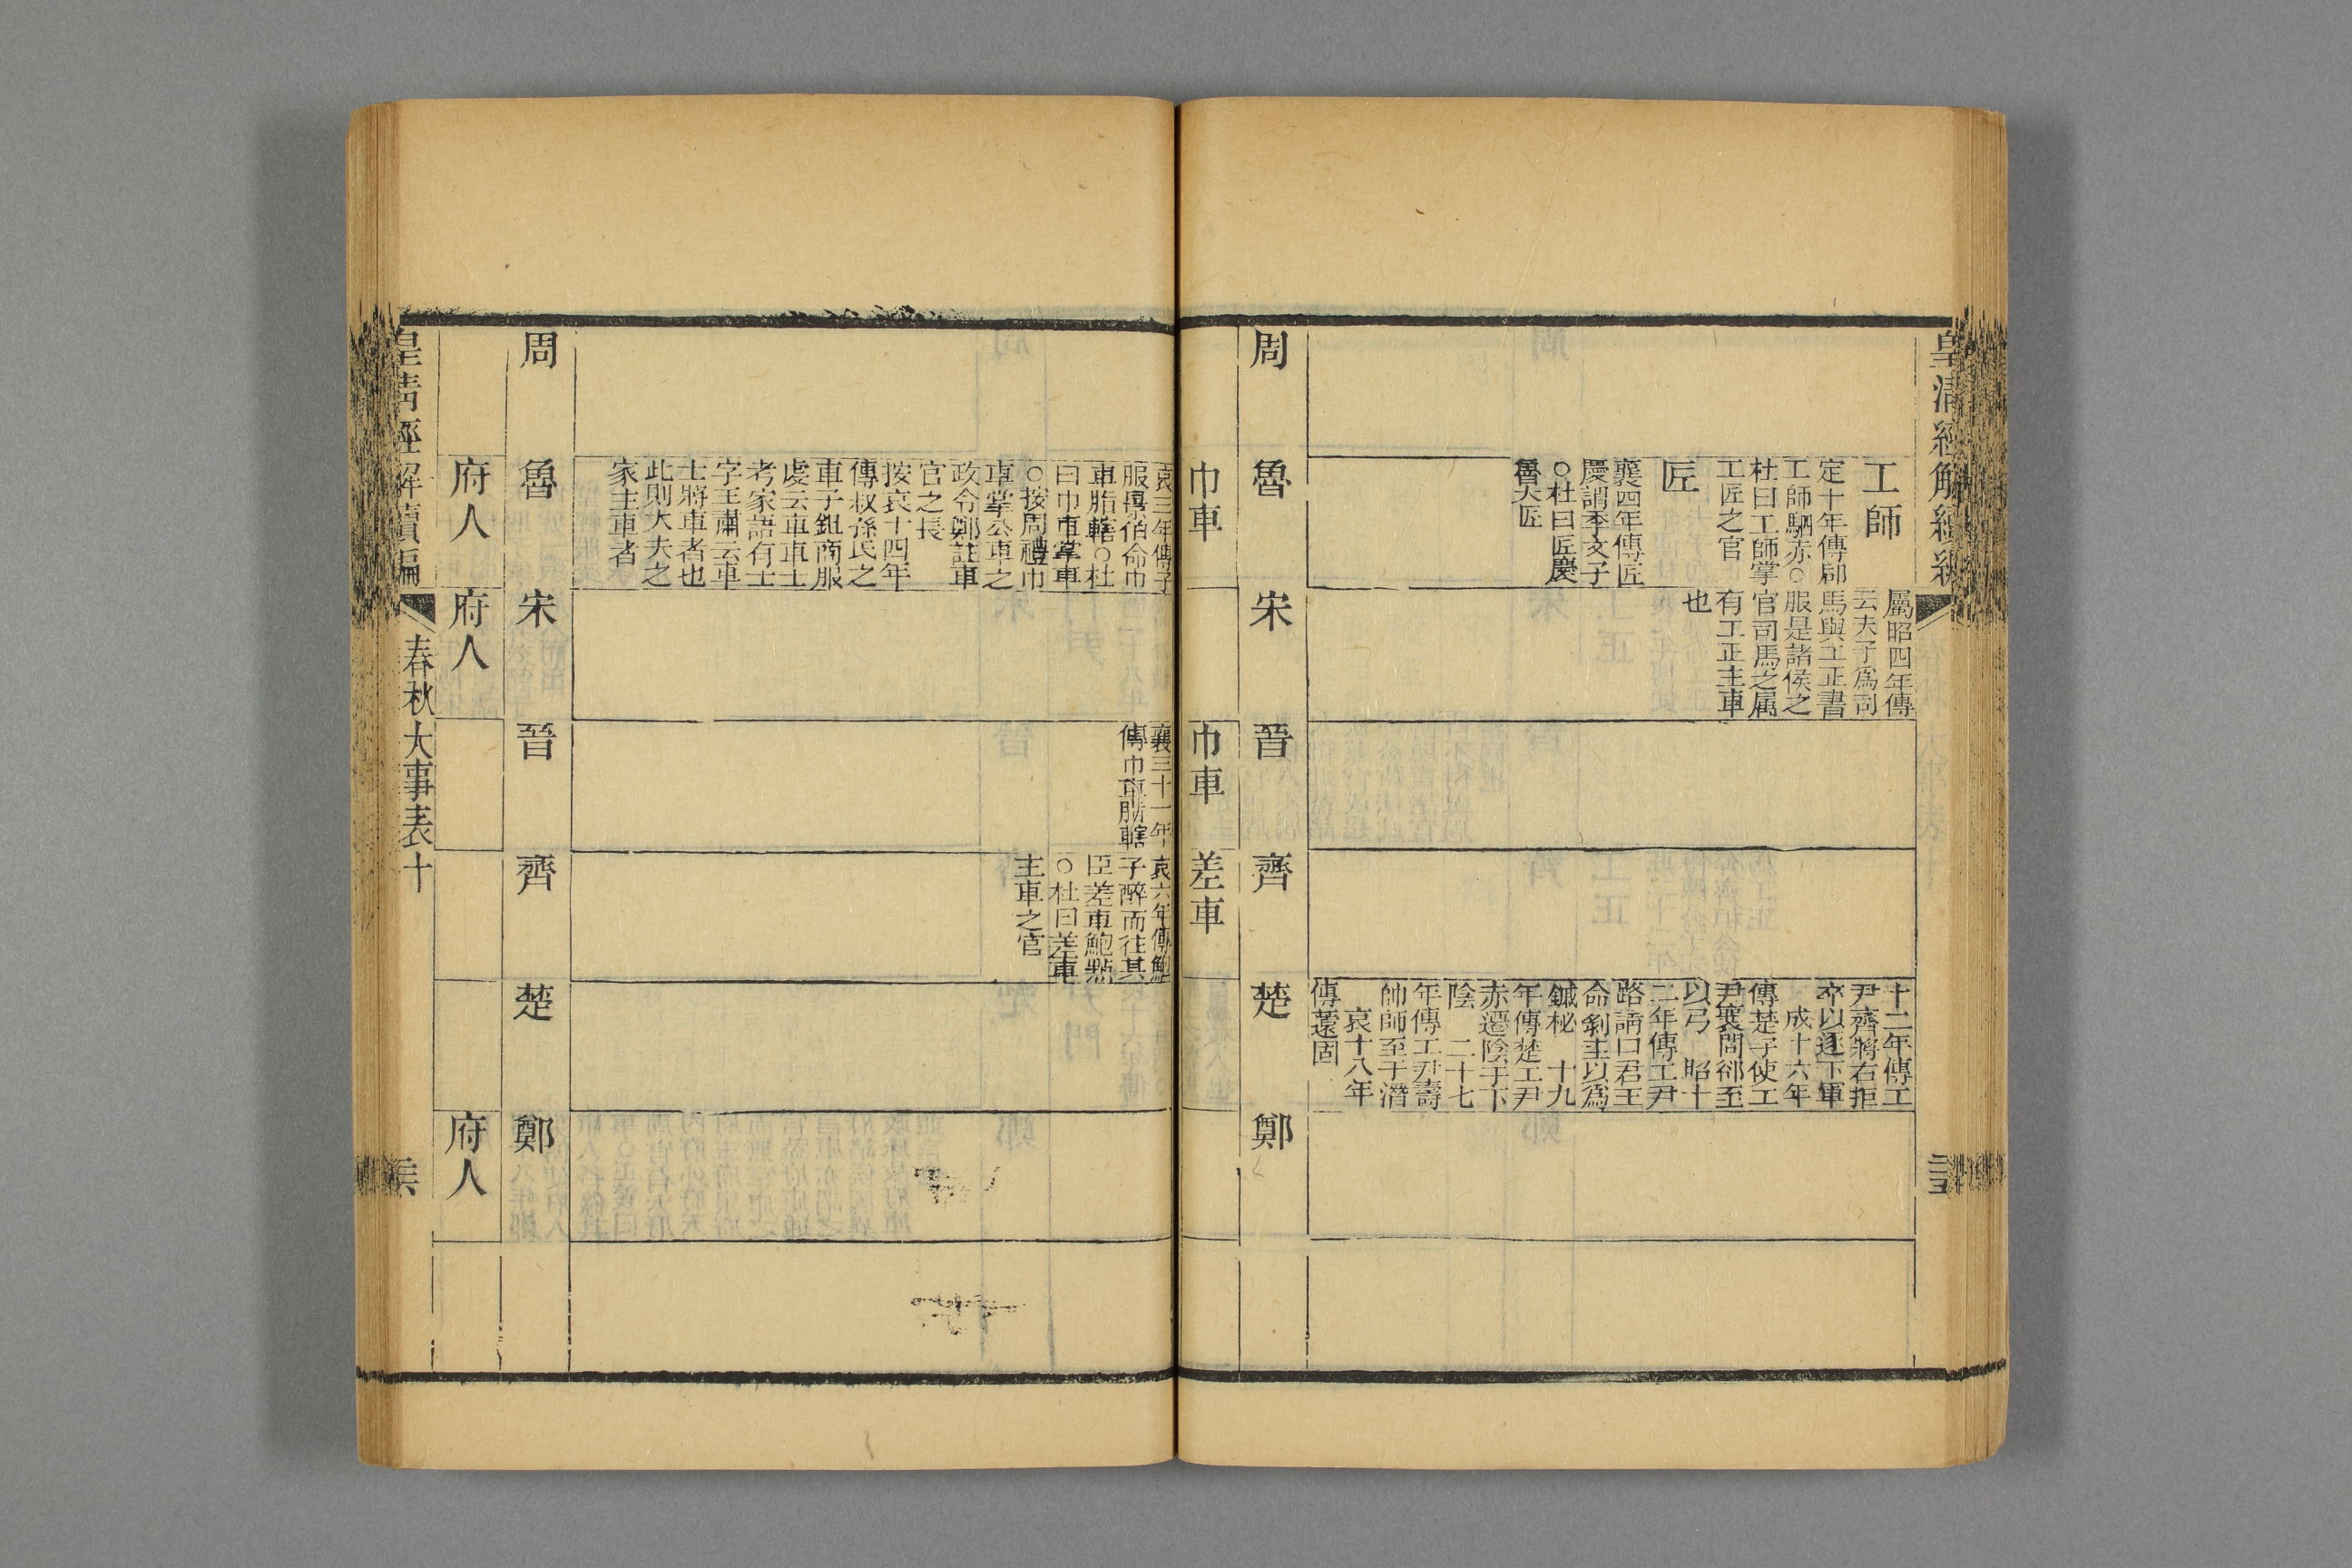 皇清經解續編
工師
定十年傳郈
工師駟赤○
杜曰工師掌
工匠之官
匠
襄四年傳匠
慶謂季文子
○杜曰匠慶
魯大匠
屬昭四年傳
云夫子爲司
馬與工正書
服是諸侯之
官司馬之屬
有工正主車
也
十二年傳工
尹齊將右拒
卒以逐下軍
成十六年
傳楚子使工
尹襄問郤至
以弓　昭十
二年傳工尹
路請曰君王
命剝圭以爲
鏚柲　十九
年傳楚工尹
赤遷陰于下
陰　二十七
年傳工尹壽
帥師至于潛
哀十八年
傳薳固
周
魯
宋
晉
齊
楚
鄭
巾車
巾車
差車
哀三年傳子
服景伯命巾
車脂轄○杜
曰巾車掌車
○按周禮巾
車掌公車之
政令鄭註車
官之長
按哀十四年
傳叔孫氏之
車子鉏商服
虔云車車士
考家語有士
字王肅云車
士將車者也
此則大夫之
家主車者
襄三十一年
傳巾車脂轄
哀六年傳鮑
子醉而往其
臣差車鮑點
○杜曰差車
主車之官
周
魯
宋
晉
齊
楚
鄭
府人
府人
府人
皇清經解續編
春秋大事表十